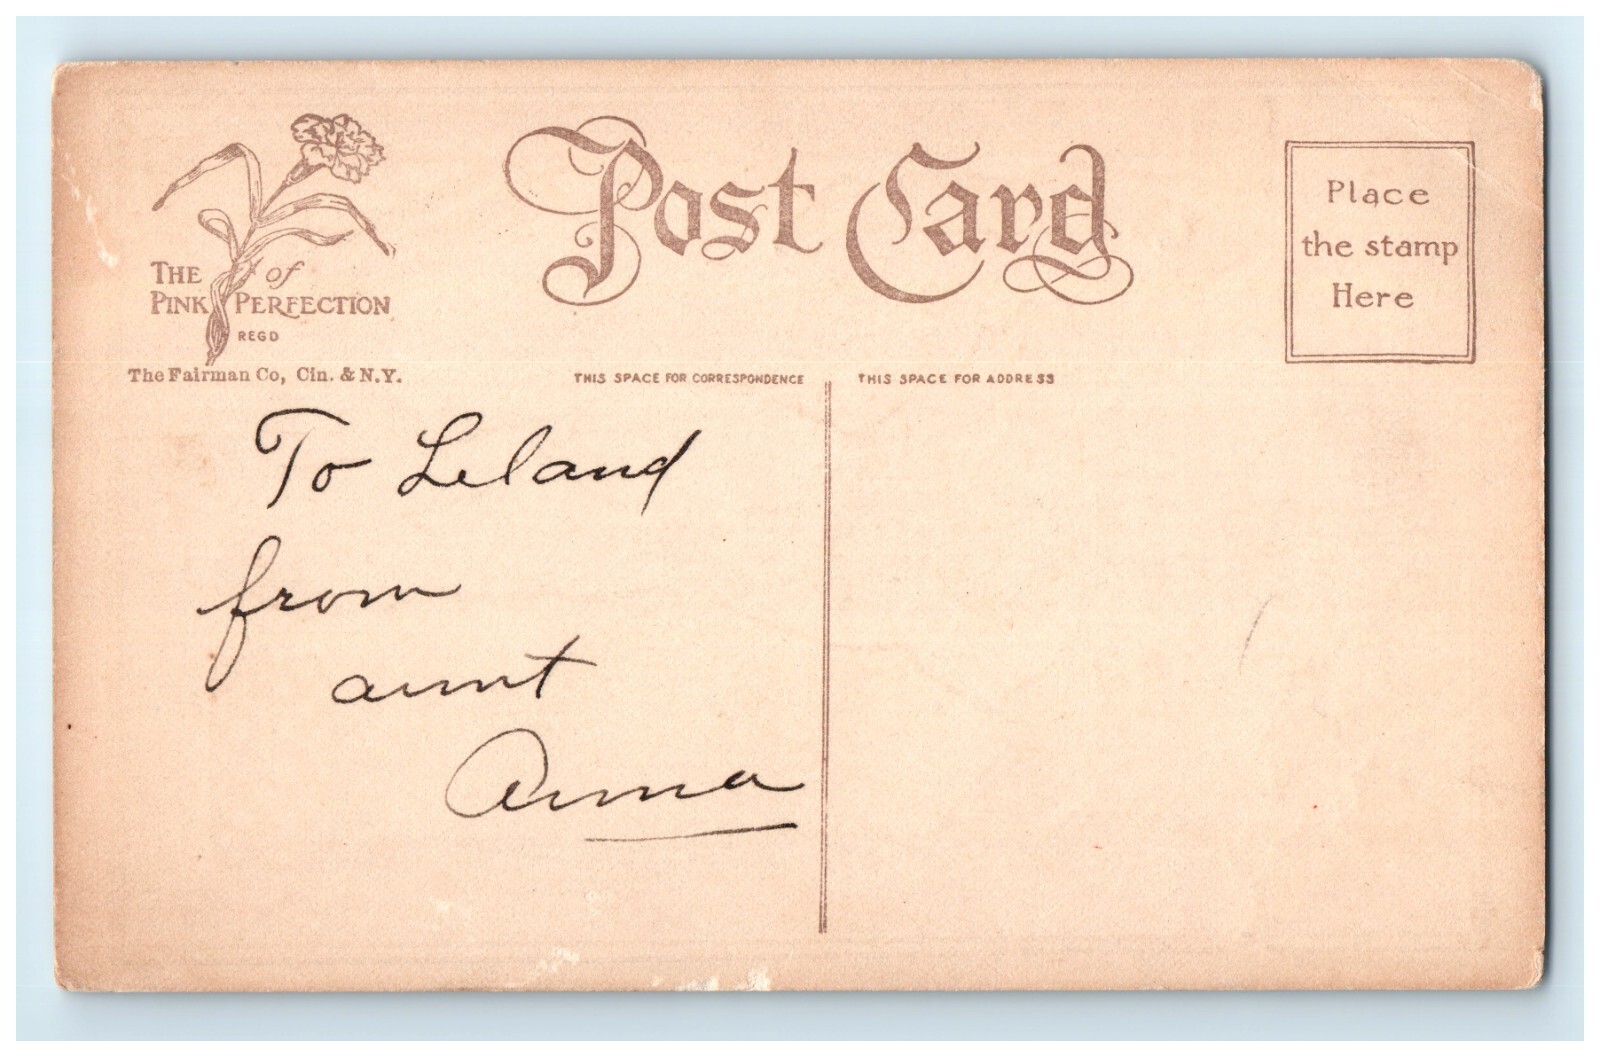 THE of
PINK PERFECTION
REGD
The Fairman Co, Cin. & N.Y.
Post Card
Place
the stamp
Here
THIS SPACE FOR CORRESPONDENCE
THIS SPACE FOR ADDRESS
To Leland
from
aunt
Anna